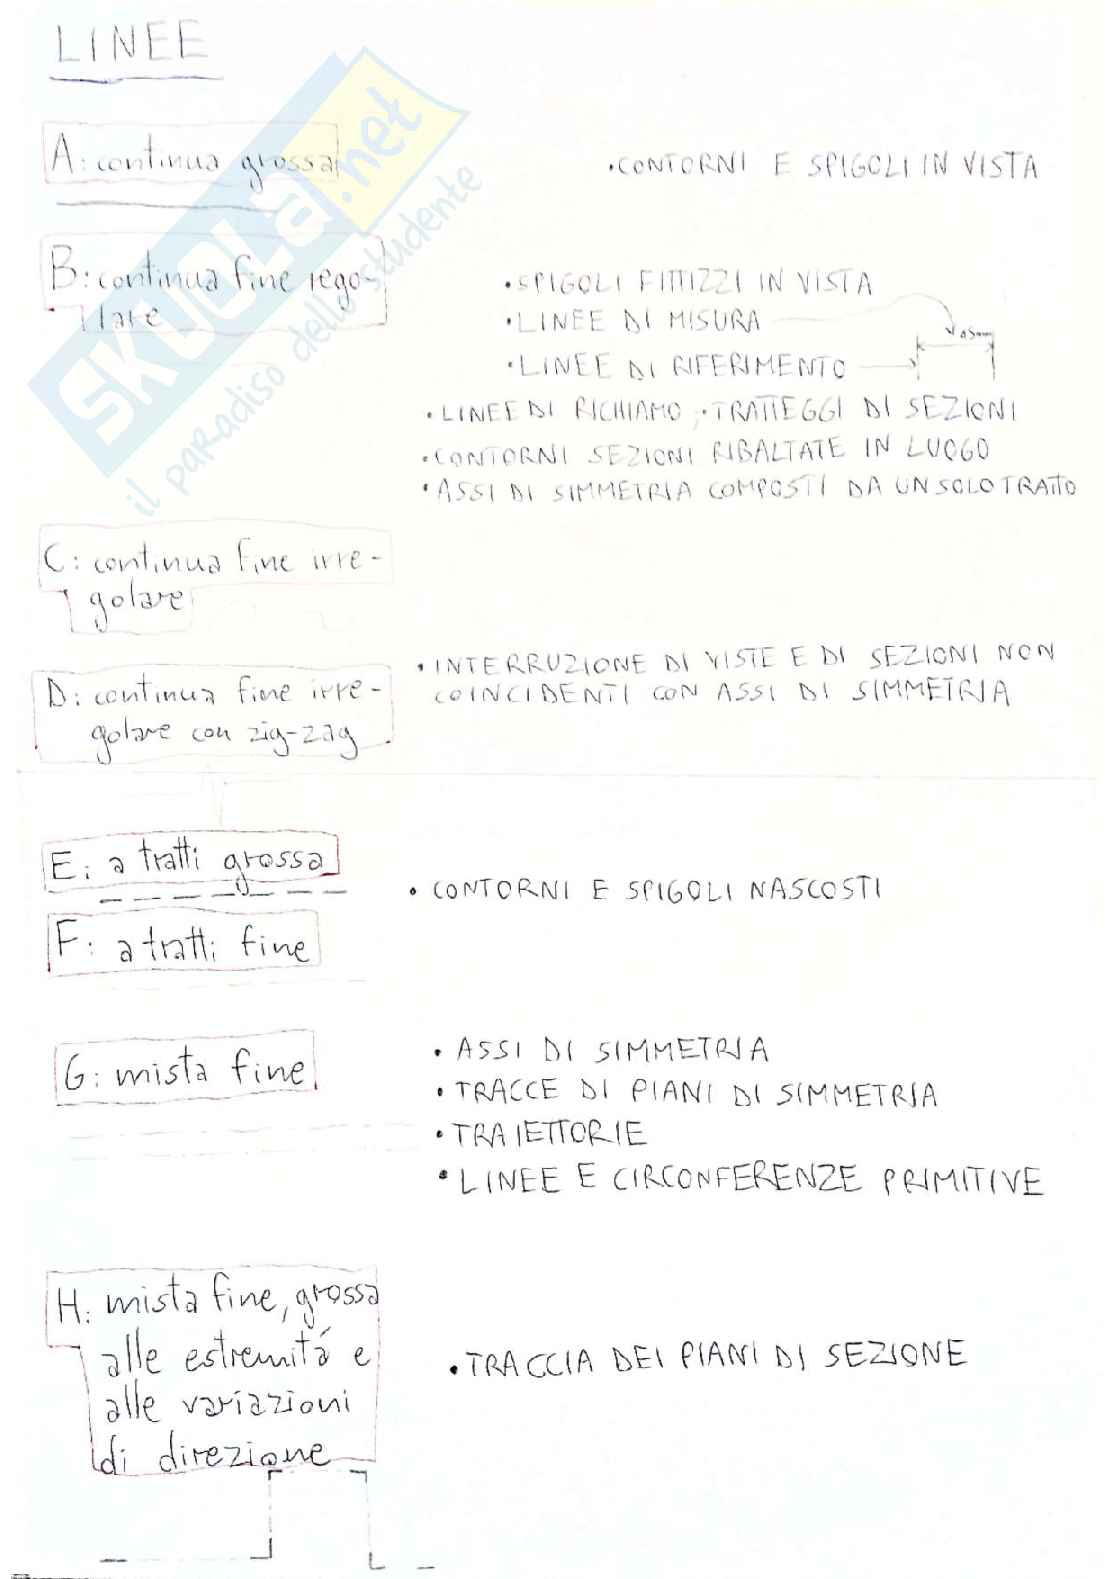 LINEE
A: continua grossa
• CONTORNI E SPIGOLI IN VISTA
B: continua fine rego-
lare
• SPIGOLI FITTIZZI IN VISTA
• LINEE DI MISURA
• LINEE DI RIFERIMENTO
• LINEE DI RICHIAMO; • TRATTEGGI DI SEZIONI
• CONTORNI SEZIONI RIBALTATE IN LUOGO
• ASSI DI SIMMETRIA COMPOSTI DA UN SOLO TRATTO
C: continua fine irre-
golare
D: continua fine irre-
golare con zig-zag
• INTERRUZIONE DI VISTE E DI SEZIONI NON
COINCIDENTI CON ASSI DI SIMMETRIA
E: a tratti grossa
• CONTORNI E SPIGOLI NASCOSTI
F: a tratti fine
G: mista fine
• ASSI DI SIMMETRIA
• TRACCE DI PIANI DI SIMMETRIA
• TRAIETTORIE
• LINEE E CIRCONFERENZE PRIMITIVE
H: mista fine, grossa
alle estremitá e
alle variazioni
di direzione
• TRACCIA DEI PIANI DI SEZIONE
SKUOLA.net
il paradiso dello studente